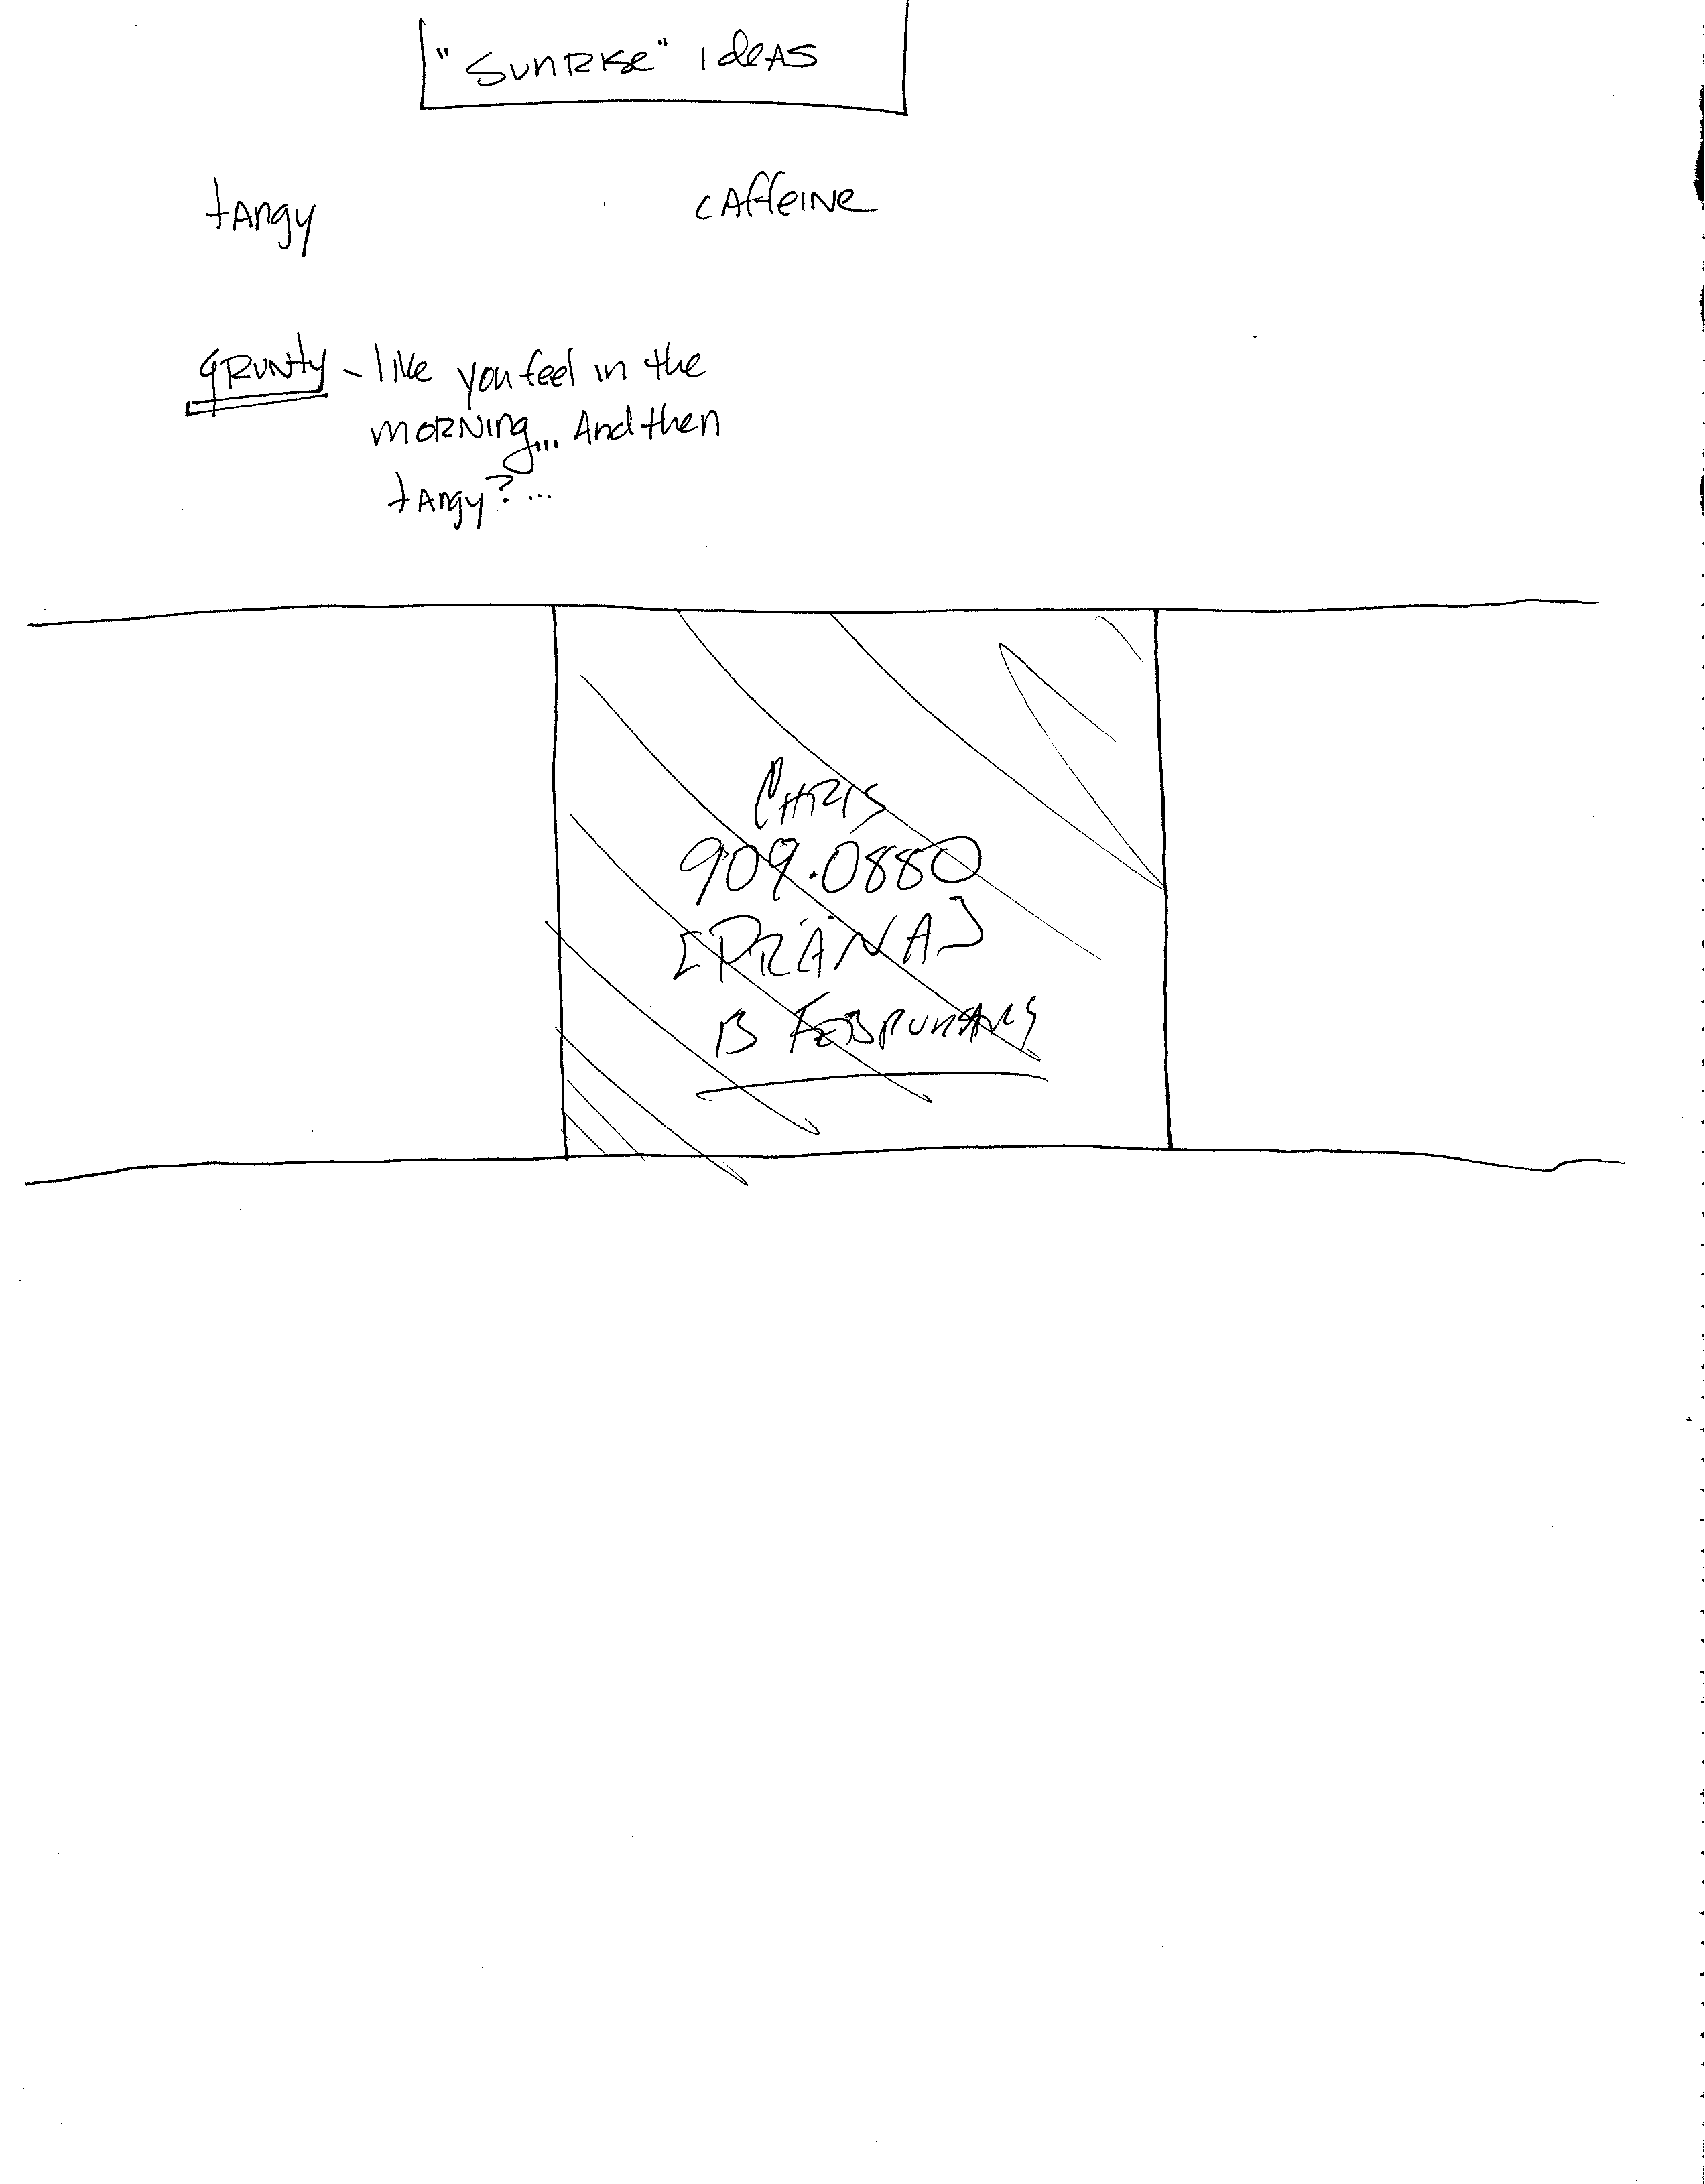 "SUNRISE" IdeAS
tAngy
cAffeINe
gRUNty - like you feel in the
mORNINg... And then
tAngy?...
CHRIS
909.0880
[PRANA]
13 FEBRUARY